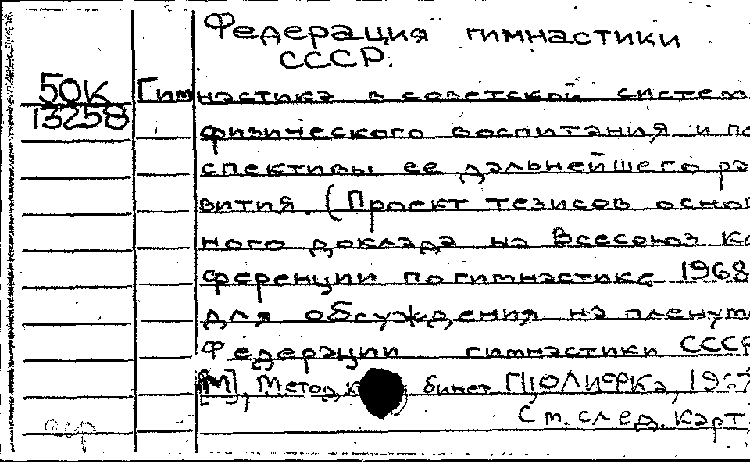 Федерация гимнастики
СССР.
50К Гимнастика в советской систем
13258 физического воспитания и пе
спективы ее дальнейшего ра
вития. (Проект тезисов основ
ного доклада на Всесоюз ко
ференции по гимнастике 1968
для обсуждения на пленум
Федерации гимнастики СССР
[М], Метод, к бинет ГЦОЛИФКа, 196
См. след. карт